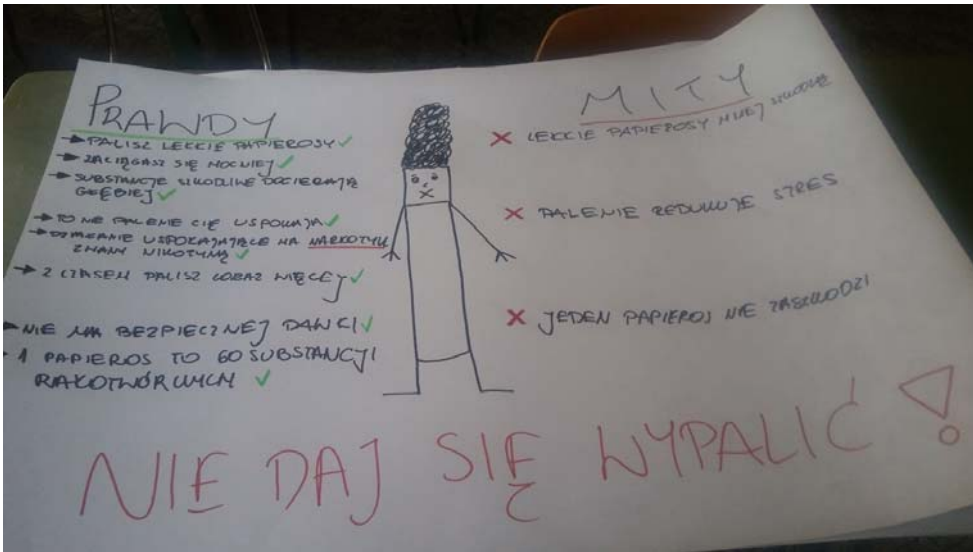 PRAWDY
→ PALISZ LEKKIE PAPIEROSY ✓
→ ZACIĄGASZ SIĘ MOCNIEJ ✓
→ SUBSTANCJE SZKODLIWE DOCIERAJĄ
GŁĘBIEJ ✓
→ TO NIE PALENIE CIĘ USPOKAJA ✓
→ DZIAŁANIE USPOKAJAJĄCE MA NARKOTYK
ZWANY NIKOTYNĄ ✓
→ Z CZASEM PALISZ CORAZ WIĘCEJ ✓
→ NIE MA BEZPIECZNEJ DAWKI ✓
→ 1 PAPIEROS TO 60 SUBSTANCJI
RAKOTWÓRCZYCH ✓
MITY
× LEKKIE PAPIEROSY MNIEJ SZKODZĄ
× PALENIE REDUKUJE STRES
× JEDEN PAPIEROS NIE ZASZKODZI
NIE DAJ SIĘ WYPALIĆ!